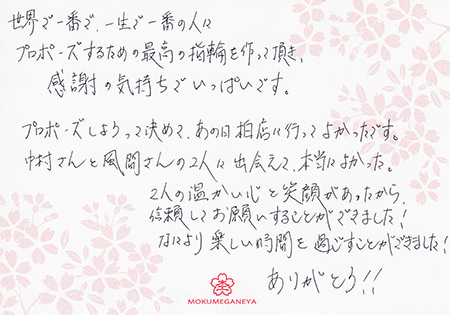 世界で一番で、一生で一番の人に
プロポーズするための最高の指輪を作って頂き、
感謝の気持ちでいっぱいです。
プロポーズしようって決めて、あの日柏店に行ってよかったです。
中村さんと風間さんの2人に出会えて、本当によかった。
2人の温かい心と笑顔があったから、
信頼してお願いすることができました!
なにより楽しい時間を過ごすことができました!
ありがとう!!
MOKUMEGANEYA